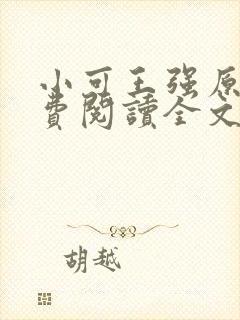 小可王强原
費閱讀全文
胡越